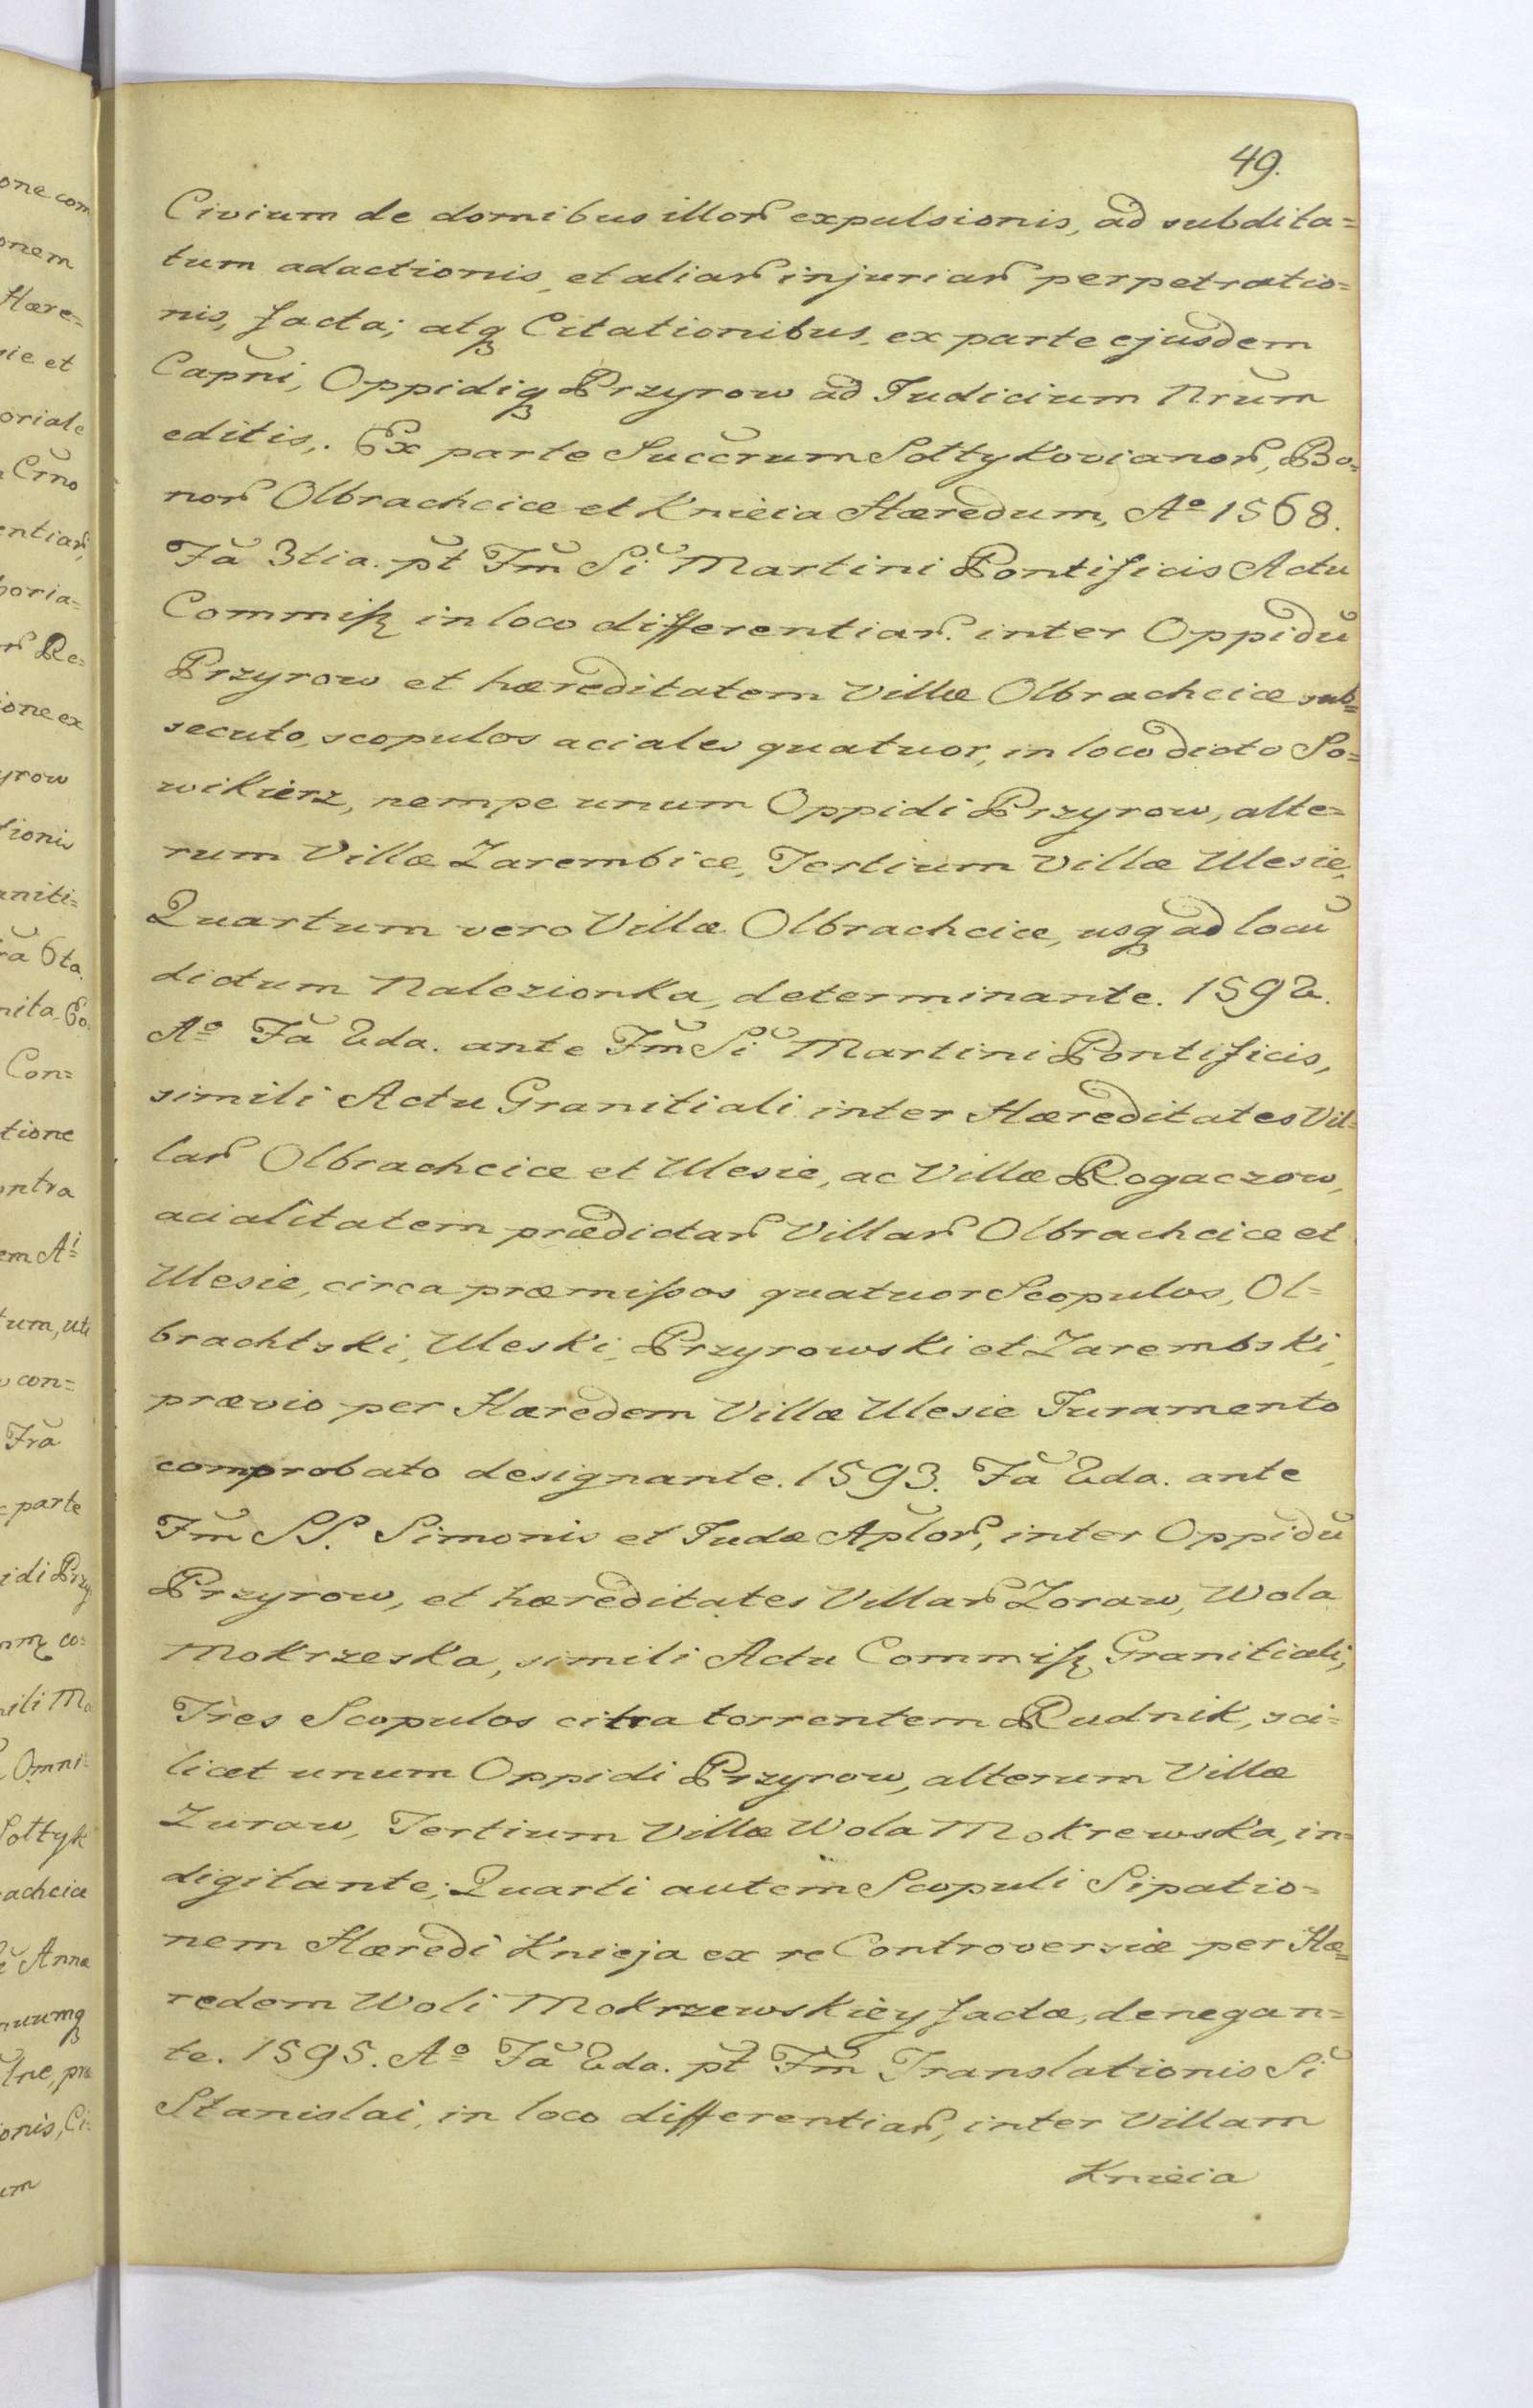 49.
Civium de domibus illoꝝ expulsionis, ad subdita=
tum adactionis, et aliaꝝ injuriaꝝ perpetratio=
nis, facta; atqꝫ Citationibus, ex parte ejusdem
Capñi, Oppidiqꝫ Przyrow ad Judicium Nrum̃
editis,. Ex parte Succrum̃ Sołtykovianoꝝ, Bo=
noꝝ Olbrachcice et Knieia Hæredum, Aº 1568.
Fã 3tia. pt̃ Fm̃ Sĩ Martini Pontificis Actu
Commiſꝫ in loco differentiaꝝ. inter Oppidũ
Przyrow et hæreditatem Villæ Olbrachcice sub=
secuto, scopulos aciales quatuor, in loco dicto So=
wikierz, nempe unum Oppidi Przyrow, alte=
rum Villæ Zarembice, Tertium Villæ Ulesie,
Quartum vero Villæ Olbrachcice, usqꝫ ad locũ
dictum Nalezionka, determinante. 1592.
Aº Fã 2da. ante Fm̃ Sĩ Martini Pontificis,
simili Actu Granitiali inter Hæreditates Vil=
laꝝ Olbrachcice et Ulesie, ac Villæ Rogaczow,
acialitatem prædictaꝝ Villaꝝ Olbrachcice et
Ulesie, circa præmiſsos quatuor Scopulos, Ol=
brachtski, Uleski, Przyrowski et Zarembski,
prævio per Hæredem Villæ Ulesie Juramento
comprobato designante. 1593. Fã 2da. ante
Fm̃ SS. Simonis et Judæ Apl̃oꝝ, inter Oppidũ
Przyrow, et hæreditates Villaꝝ Zoraw, Wola
Mokrzeska, simili Actu Commiſꝫ Granitiali,
Tres Scopulos citra torrentem Rudnik, sci=
licet unum Oppidi Przyrow, alterum Villæ
Zuraw, Tertium Villæ Wola Mokrewska, in=
digitante; Quarti autem Scopuli Sipatio=
nem Hæredi Knieja ex re Controversiæ per Hæ=
redem Woli Mokrzewskiey factæ, denegan=
te. 1595. Aº Fã 2da. pt̃ Fm̃ Translationis Sĩ
Stanislai, in loco differentiaꝝ, inter Villam
Knieia